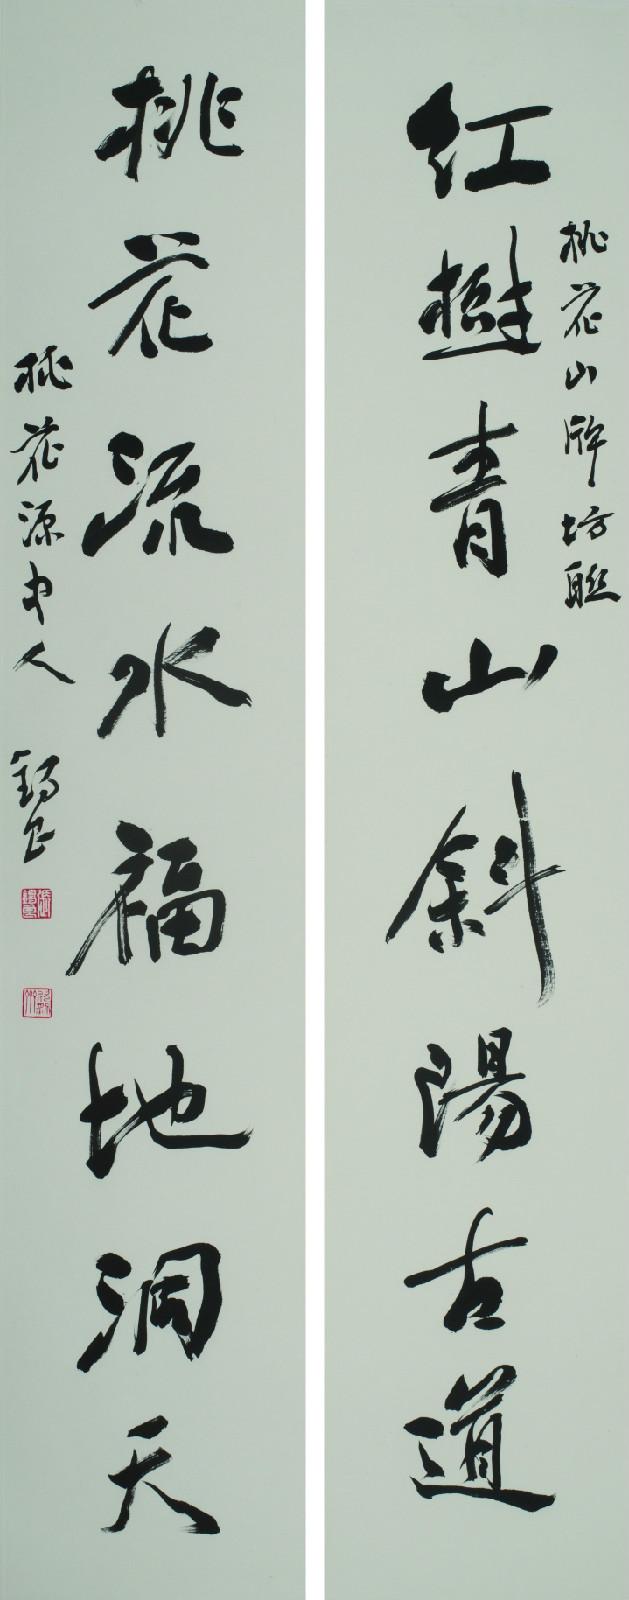 桃花山牌坊联
红樹青山斜陽古道
桃花流水福地洞天
桃花源中人 錫良